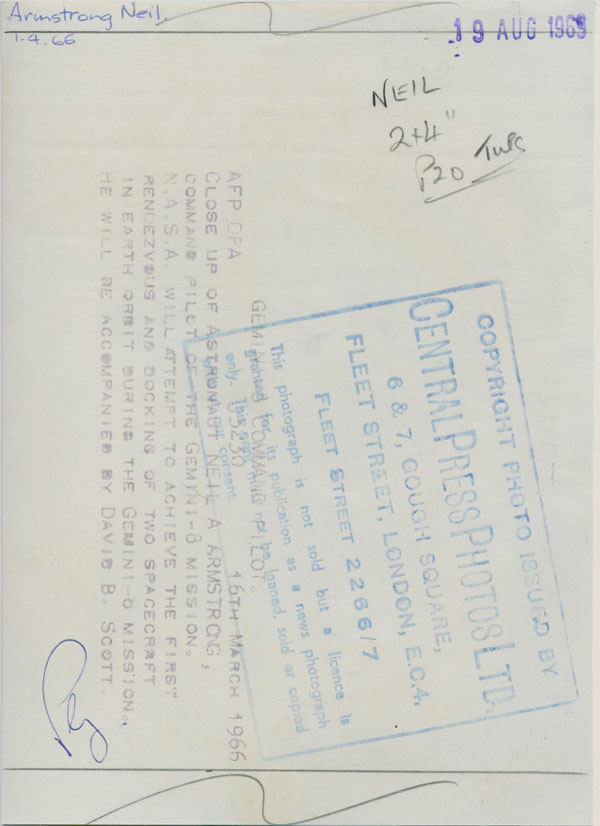 Armstrong Neil.
1-4.66
19 AUG 1969
NEIL
2+4"
P20
COPYRIGHT PHOTO ISSUED BY
CENTRAL PRESS PHOTOS LTD.
6 & 7, GOUGH SQUARE,
FLEET STREET, LONDON, E.C.4.
FLEET STREET 2266/7
This photograph is not sold but a licence is
granted for its publication as a news photograph
only. This must not be loaned, sold or copied
without consent.
GEMINI COMMAND PILOT.
AFP DPA 03230 16TH MARCH 1966
CLOSE UP OF ASTRONAUT NEIL A ARMSTRONG,
COMMAND PILOT OF THE GEMINI-8 MISSION.
N.A.S.A. WILL ATTEMPT TO ACHIEVE THE FIRST
RENDEZVOUS AND DOCKING OF TWO SPACECRAFT
IN EARTH ORBIT DURING THE GEMINI-8 MISSION.,
HE WILL BE ACCOMPANIED BY DAVID B. SCOTT.